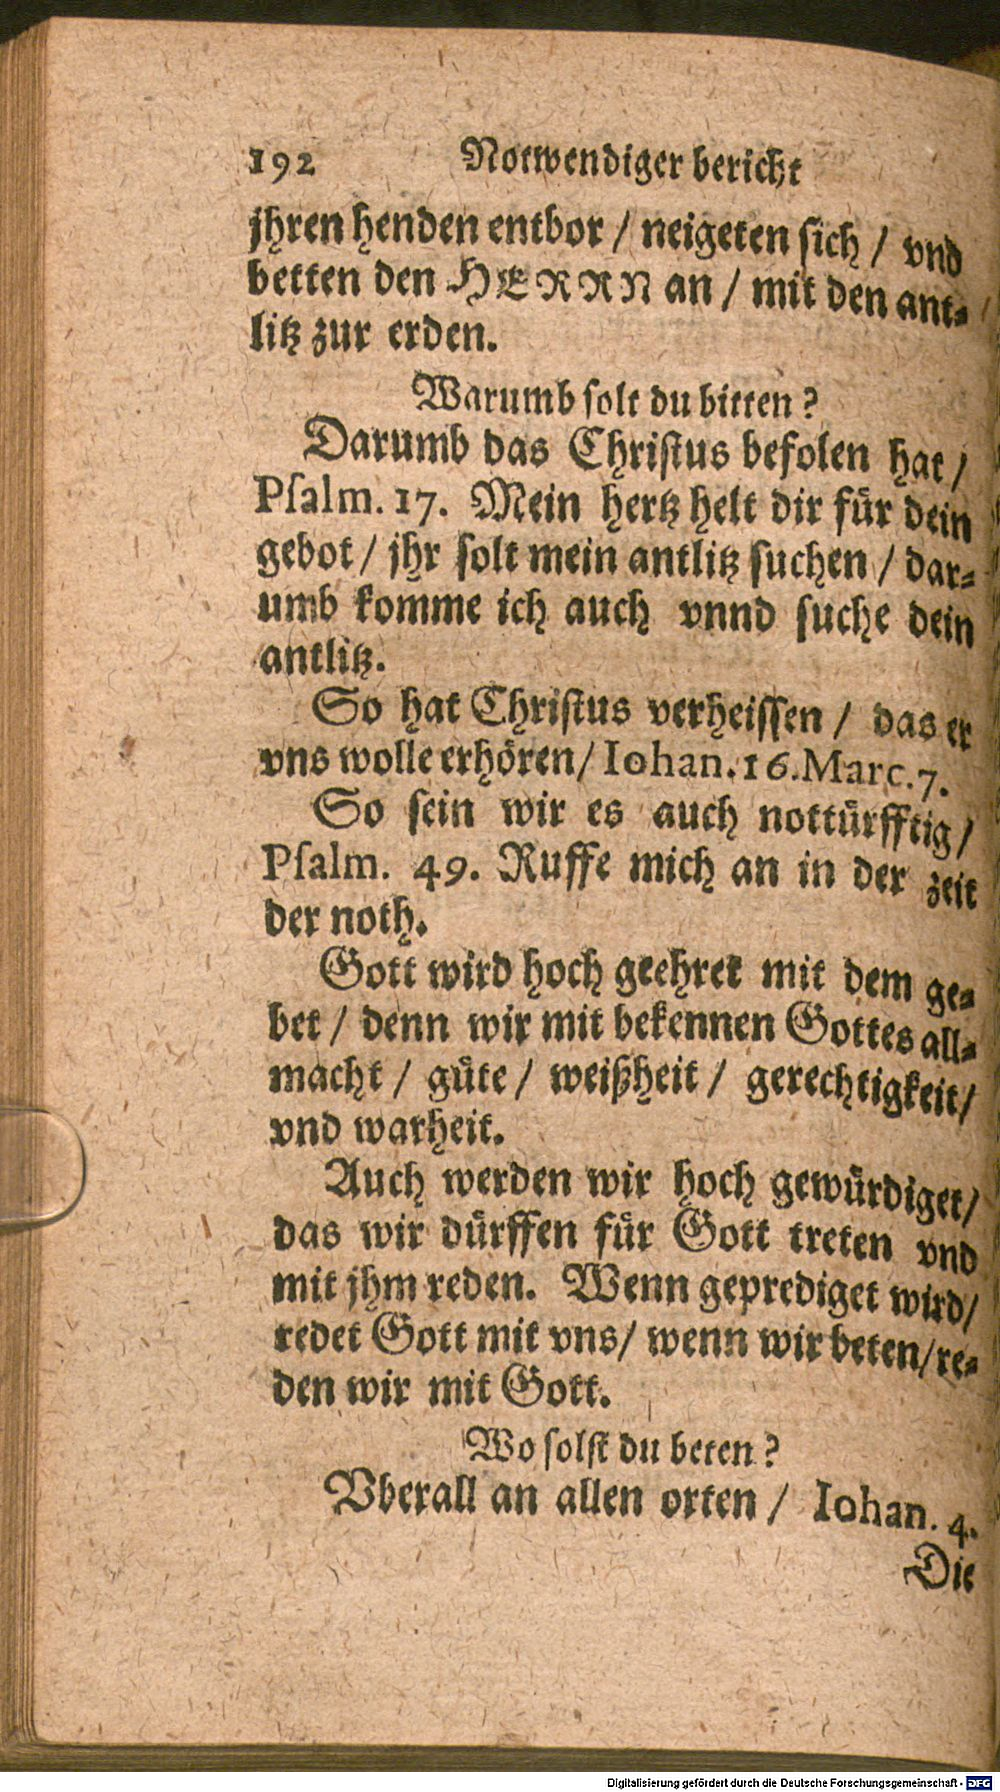 192 Notwendiger bericht
jhren henden entbor / neigeten sich / vnd
betten den HERRN an / mit den ant-
litz zur erden.
Warumb solt du bitten ?
Darumb das Christus befolen hat /
Psalm. 17. Mein hertz helt dir für dein
gebot / jhr solt mein antlitz suchen / dar-
umb komme ich auch vnnd suche dein
antlitz.
So hat Christus verheissen / das er
vns wolle erhören / Iohan. 16. Marc. 7.
So sein wir es auch nottürfftig /
Psalm. 49. Ruffe mich an in der zeit
der noth.
Gott wird hoch geehret mit dem ge-
bet / denn wir mit bekennen Gottes all-
macht / güte / weißheit / gerechtigkeit /
vnd warheit.
Auch werden wir hoch gewürdiget /
das wir dürffen für Gott treten vnd
mit jhm reden. Wenn geprediget wird /
redet Gott mit vns / wenn wir beten / re-
den wir mit Gott.
Wo solst du beten ?
Vberall an allen orten / Iohan. 4.
Die
Digitalisierung gefördert durch die Deutsche Forschungsgemeinschaft - DFG